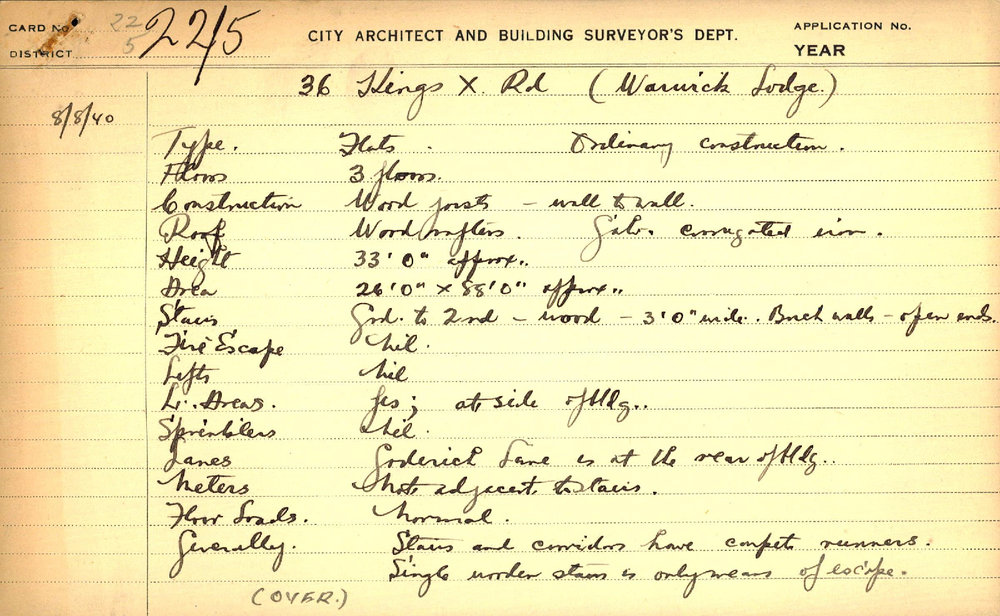 CARD No. 22/5 CITY ARCHITECT AND BUILDING SURVEYOR'S DEPT. APPLICATION No.
DISTRICT 22 5 YEAR
36 Kings X. Rd (Warwick Lodge.)
8/8/40
Type. Flats. Ordinary construction.
Floors 3 floors.
Construction Wood joists - wall to wall.
Roof Wood rafters. Galv. corrugated iron.
Height 33'0" approx..
Area 26'0" x 88'0" approx..
Stairs Grd. to 2nd - wood - 3'0" wide. Brick walls - open ends.
Fire Escape Nil.
Lifts Nil
L. Areas. Yes; at side of bldg..
Sprinklers Nil.
Lanes Goderich Lane is at the rear of bldg..
Meters Not adjacent to stairs.
Floor Loads. Normal.
Generally. Stairs and corridors have carpet runners.
Single wooden stairs is only means of escape.
(OVER.)